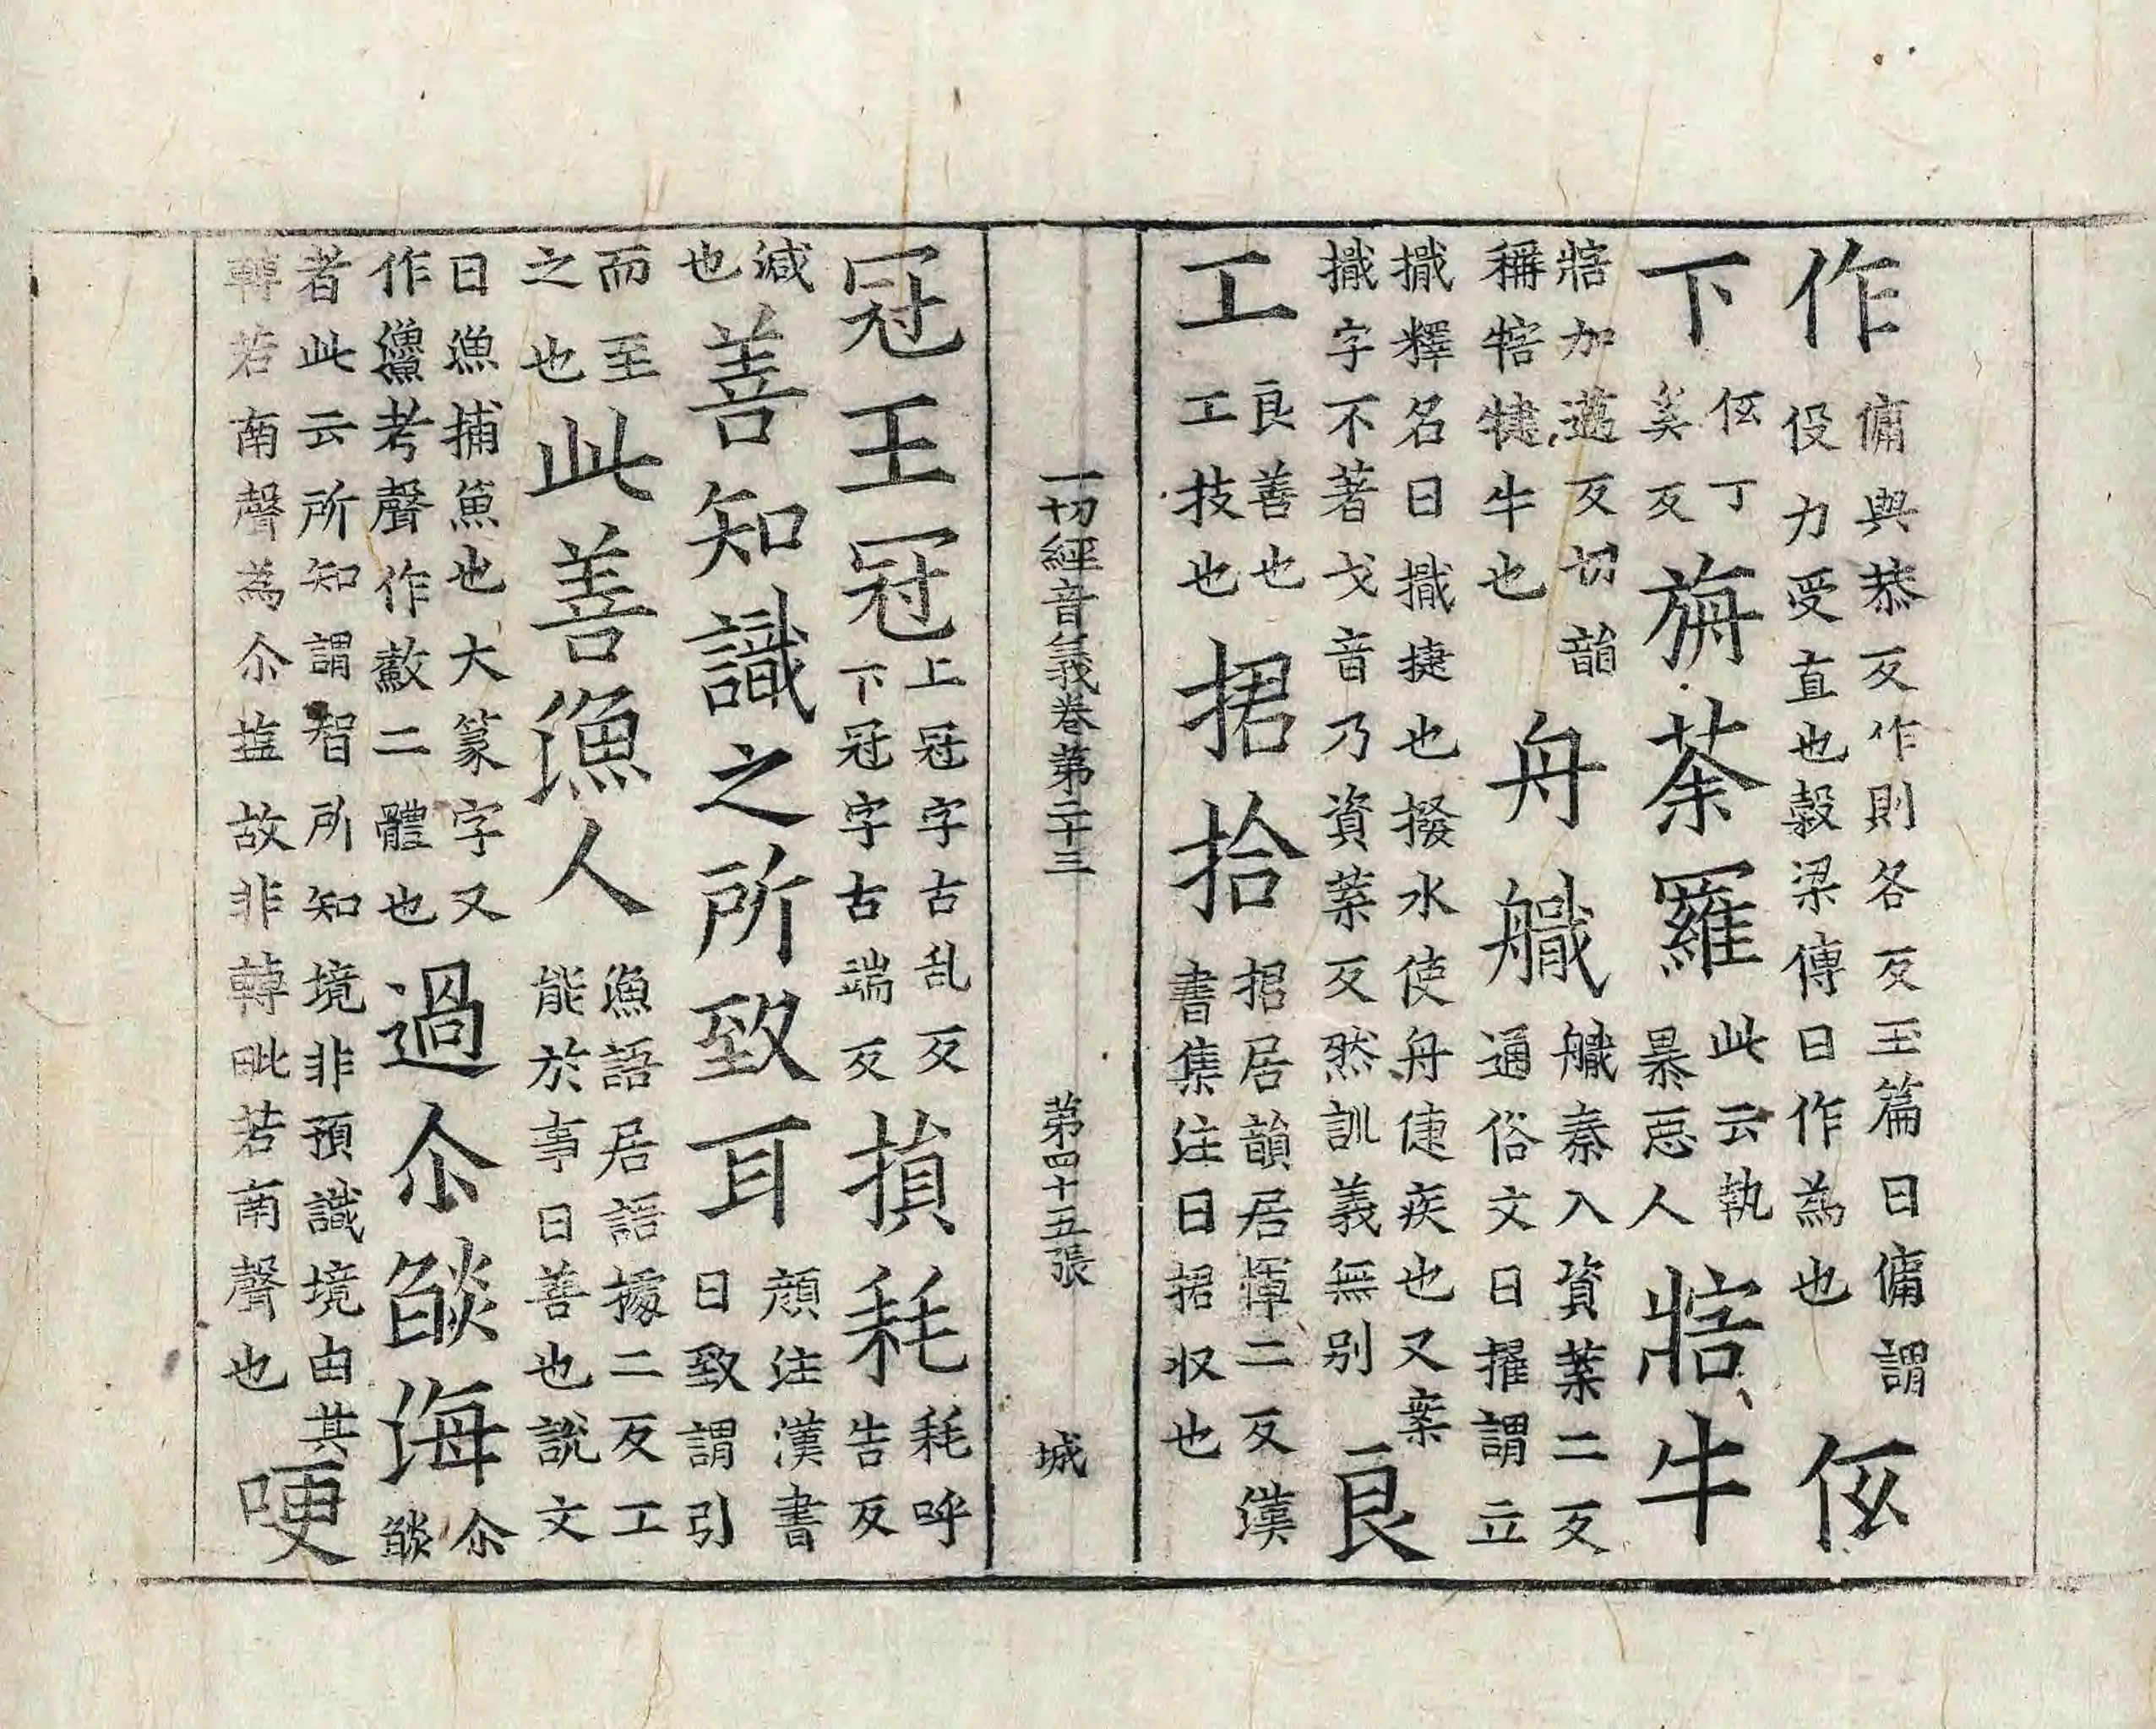 作傭與恭反作則各反玉篇曰傭謂役力受直也榖梁傳曰作為也伭
下伭丁奚反旃荼羅此云執暴惡人㹊牛
㹊加邁反切韻稱犗犍牛也舟艥艥秦入資葉二反通俗文曰擢謂立
擑釋名曰擑捷也撥水使舟倢疾也又案擑字不著戈音乃資葉反然訓義無別良
工良善也工技也捃拾捃居韻居惲二反漢書集注曰捃収也
一切經音義卷第二十三 第四十五張 城
冠王冠上冠字古乱反下冠字古端反損耗耗呼告反
減也善知識之所致耳顔注漢書曰致謂引
而至之也此善漁人漁語居語據二反工能於事曰善也說文
曰漁捕魚也大篆字又作䲣考聲作䰻二體也過尒焰海尒焰
者此云所知謂智所知境非預識境由其轉若南聲為尒焰故非轉毗若南聲也哽